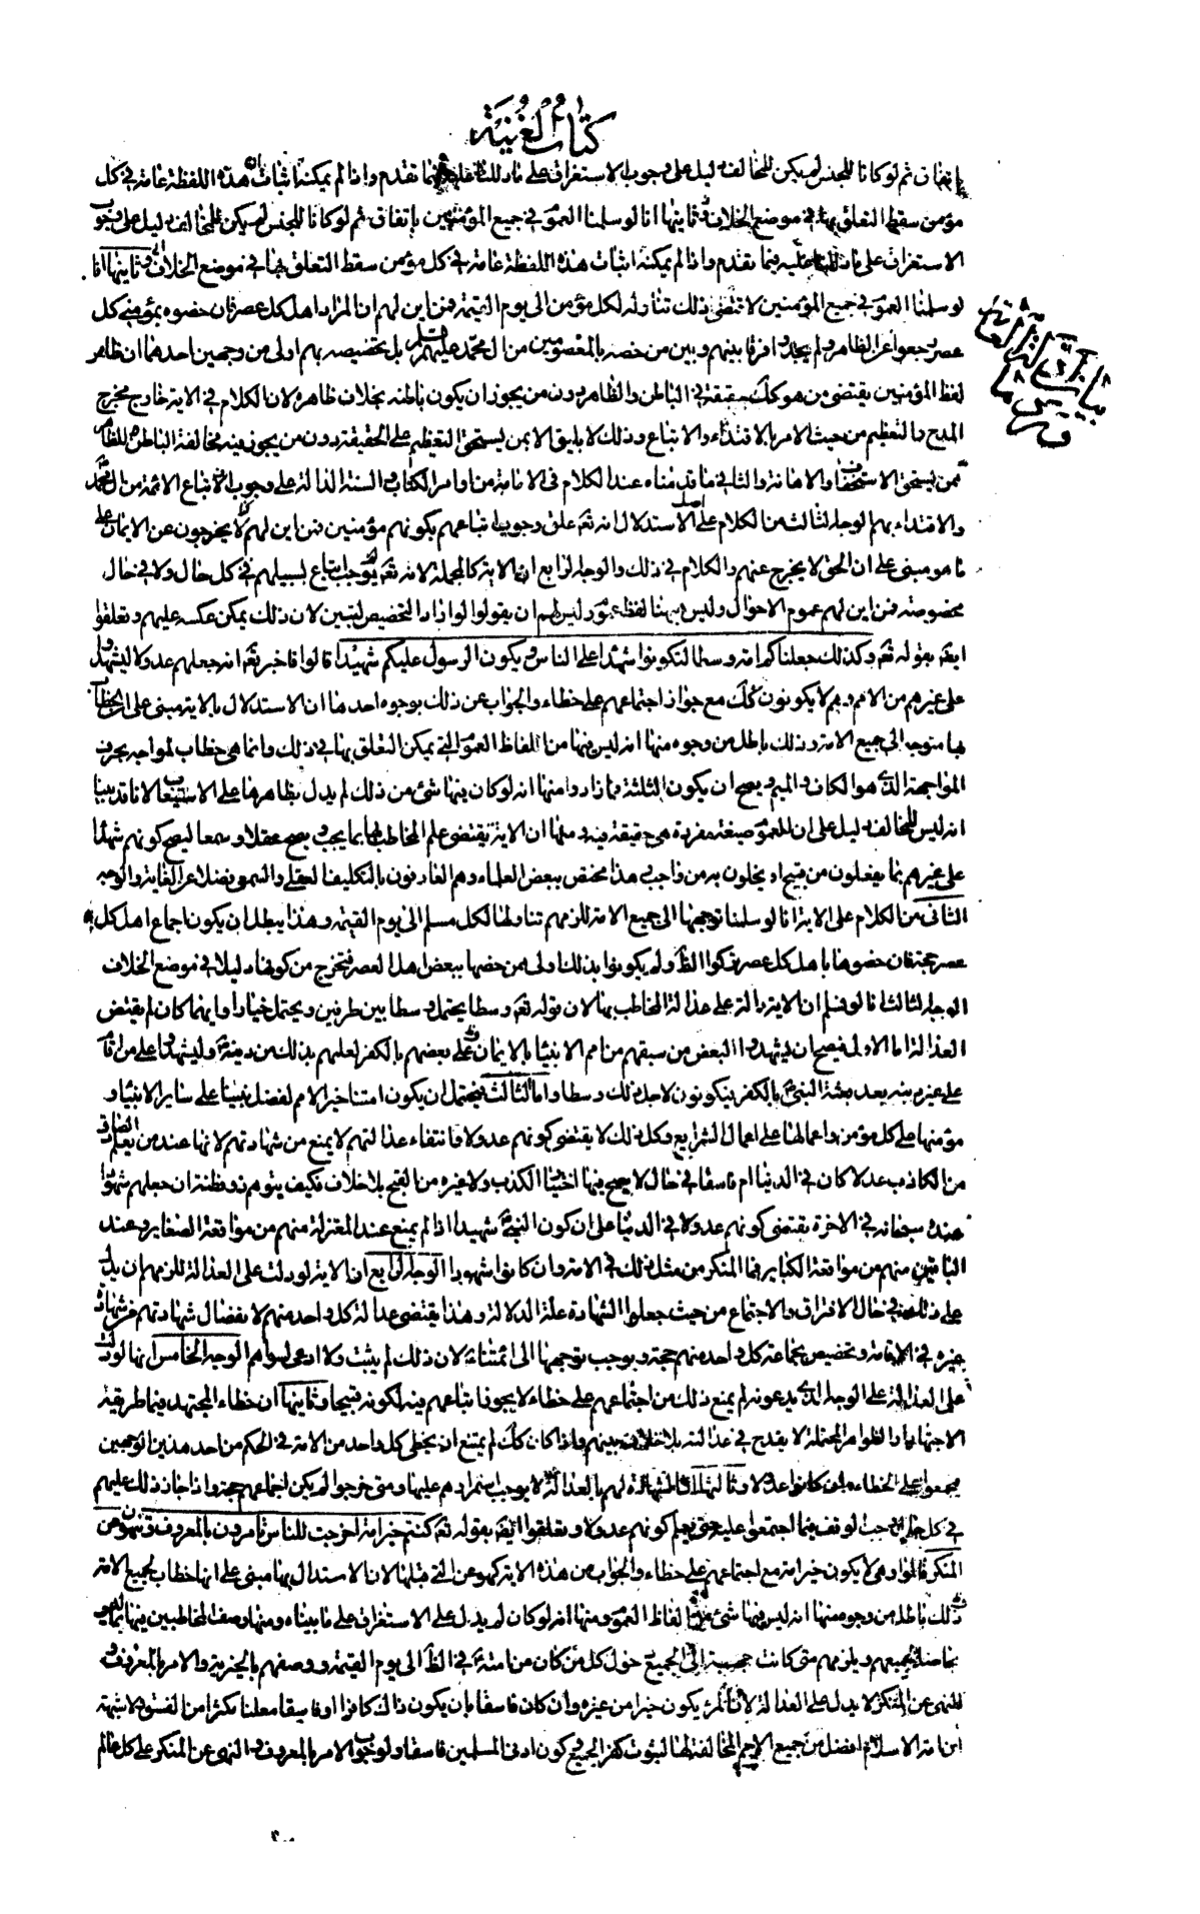 كتاب الغنية
باتفاق ثم لو كانا للجنس لم يكن للمخالف دليل على وجوب الاستغراق على ما دللنا عليه فيما تقدم واذا لم يمكنه اثبات هذه اللفظة عامة في كل
مؤمن سقط التعلق بها في موضع الخلاف وثانيها انا لو سلمنا العموم في جميع المؤمنين باتفاق ثم لو كانا للجنس لم يكن للمخالف دليل على وجوب
الاستغراق على ما دللنا عليه فيما تقدم واذا لم يمكنه اثبات هذه اللفظة عامة في كل مؤمن سقط التعلق بها في موضع الخلاف وثانيها انا
لو سلمنا العموم في جميع المؤمنين لاقتضى ذلك تناوله لكل مؤمن الى يوم القيمة فمن اين لهم ان المراد اهل كل عصر فان خصوه بمؤمني كل
عصر رجعوا عن الظاهر ولم يجدوا فرقا بينهم وبين من خصه بالمعصومين من ال محمد عليهم السلم بل تخصيصه بهم اولى من وجهين احدهما ان ظاهر
لفظ المؤمنين يقتضى من هو كك حقيقة في الباطن والظاهر دون من يجوز ان يكون باطنه بخلاف ظاهره لان الكلام في الاية خارج مخرج
المدح والتعظيم من حيث الامر بالاقتداء والاتباع وذلك لا يليق الا بمن يستحق التعظيم على الحقيقة دون من يجوز فيه مخالفة الباطن للظاهر
فمن يستحق الاستخفاف والاهانة والثاني ما قدمناه عند الكلام في الامامة من اوامر الكتاب والسنة الدالة على وجوب الاتباع الائمة من ال محمد
والاقتداء بهم الوجه الثالث من الكلام على اصل الاستدلال انه تع علق وجوب اتباعهم بكونهم مؤمنين فمن اين لهم لا يخرجون عن الايمان على
ما هو مبنى على ان الحق لا يخرج عنهم والكلام في ذلك والوجه الرابع ان الاية كالمجملة لانه تع لم يوجب اتباع لسبيلهم في كل حال ولا في حال
مخصوصة فمن اين لهم عموم الاحوال وليس ههنا لفظ عموم وليس لهم ان يقولوا لو اراد التخصيص لتبين لان ذلك يمكن عكسه عليهم وتعلقوا
ايض بقوله تع وكذلك جعلناكم امة وسطا لتكونوا شهداء على الناس ويكون الرسول عليكم شهيدا قالوا فاخبر تع انه جعلهم عدولا ليشهدوا
على غيرهم من الامم وهم لا يكونون كك مع جواز اجتماعهم على خطاء والجواب عن ذلك بوجوه احدها ان الاستدلال بالاية مبنى على ان الخطاب
بها متوجه الى جميع الامة وذلك باطل من وجوه منها انه ليس فيها من الفاظ العموم التي يمكن التعلق بها في ذلك وانما هي خطاب لمواجه بحرف
المواجهة الذى هو الكاف والميم ويصح ان يكون الثلثة فما زاد ومنها انه لو كان فيها شئ من ذلك لم يدل بظاهرها على الاستيعاب لانا قد بينا
انه ليس للمخالف دليل على ان للعموم صيغة مفردة هي حقيقة فيه ومنها ان الاية يقتضى علم المخاطب بها بما يجب ويصح عقلا وسمعا ليصح كونهم شهداء
على غيرهم بما يفعلون من قبيح او يخلون به من واجب هذا مختص ببعض العلماء وهم العارفون بالتكليف العقلي والسمعي فضلا عن الغاية والوجه
الثانى من الكلام على الاية انا لو سلمنا توجهها الى جميع الامة للزمهم تناولها لكل مسلم الى يوم القيمة وهذا يبطل ان يكون اجماع اهل كل
عصر حجة فان خصوها باهل كل عصر تركوا الظ ولم يكونوا بذلك اولى من خصها ببعض اهل العصر فتخرج من كونها دليلا في موضع الخلاف
الوجه الثالث انا لو فسلم ان الاية دالة على عدالة المخاطب بها لان قوله تع وسطا يحتمل وسطا بين طرفين ويحتمل خيارا وايهما كان لم يقتض
العدالة اما الاولى فيصح ان يشهدوا البعض من سبقهم من امم الانبياء بالايمان وعلى بعضهم بالكفر لعلهم بذلك من دينه وليشهدوا على من اقام
على غير دينه بعد بعثة النبى بالكفر فيكونون لاجل ذلك وسطا واما الثالث فيحتمل ان يكون امتنا خير الامم لفضل نبينا على سائر الانبياء و
مؤمنها على كل مؤمن واعمالها على اعمال الشرايع وكل ذلك لا يقتضى كونهم عدولا فانتفاء عدالتهم لا يمنع من شهادتهم لانها عند من يعلم الصادق
من الكاذب عدلا كان في الدنيا ام فاسقا في حال لا يصح فيها اختيار الكذب ولا غيره من القبح بلا خلاف فكيف يتوهم ذو فطنة ان جعلهم شهودا
عنده سبحانه في الاخرة يقتضى كونهم عدولا في الدنيا على ان كون النبي شهيدا اذا لم يمنع عند المعتزلة منهم من مواقعة الصغاير وعند
الباقين منهم من مواقعة الكباير فما المنكر من مثل ذلك في الامة وان كانوا شهودا الوجه الرابع ان الاية لو دلت على العدالة للزمهم ان يدل
على ذلك في حال الافتراق والاجتماع من حيث جعلوا الشهادة علة الدلالة وهذا يقتضى عدالة كل واحد منهم لانفصال شهادتهم من شهادة
غيره في الاقامة وتخصيص بجماعة كل واحد منهم حجة ويوجب توجهها الى ائمتنا لان ذلك لم يثبت ولا ادعى لسواهم الوجه الخامس انها لو دلت
على العدالة على الوجه الذى يدعونه لم يمنع ذلك من اجتماعهم على خطاء لا يجوز اتباعهم فيه لكونه قبيحا وثانيها ان خطاء المجتهد فيما طريقه
الاجتهاد والظواهر المحتملة لا يقدح في عدالته بلا خلاف بينهم واذا كان كك لم يمتنع ان يخطى كل واحد من الامة في الحكم من احد هذين الوجهين
فيجمعوا على الخطاء وان كانوا عدولا وثالثها ان الشهادة لهم بالعدالة لا يوجب استمرارهم عليها ومتى خرجوا لم يكن اجماعهم حجة واذا جاز ذلك عليهم
في كل حال وجب لوقف فيما اجتمعوا عليه حتى يعلم كونهم عدولا وتعلقوا ايض بقوله تع كنتم خير امة اخرجت للناس تامرون بالمعروف وتنهون عن
المنكر قالوا وهى لا يكون خير امة مع اجتماعهم على خطاء والجواب عن هذه الاية كهو عن التي قبلها لان الاستدلال بها مبنى على انها خطاب لجميع الامة
وذلك باطل من وجوه منها انه ليس فيها شئ من الفاظ العموم ومنها انه لو كان لم يدل على الاستغراق على ما بيناه ومنها وصف المخاطبين فيها
خاصا لجميعهم ويلزمهم متى كانت الى الجميع حول كل من كان من امته في الظ الى يوم القيمة ووصفهم بالخيرية والامر بالمعروف و
للنهى عن المنكر لا يدل على العدالة لان المرء يكون خيرا من غيره وان كان فاسقا بان يكون ذاك كافرا او فاسقا معلنا مكثرا من الفسق ولا شبهة
ان امة الاسلام افضل من جميع الامم المخالفة لها لثبوت كفر الجميع وكون ادنى المسلمين فاسقا ولوجوب الامر بالمعروف والنهى عن المنكر على كل عالم